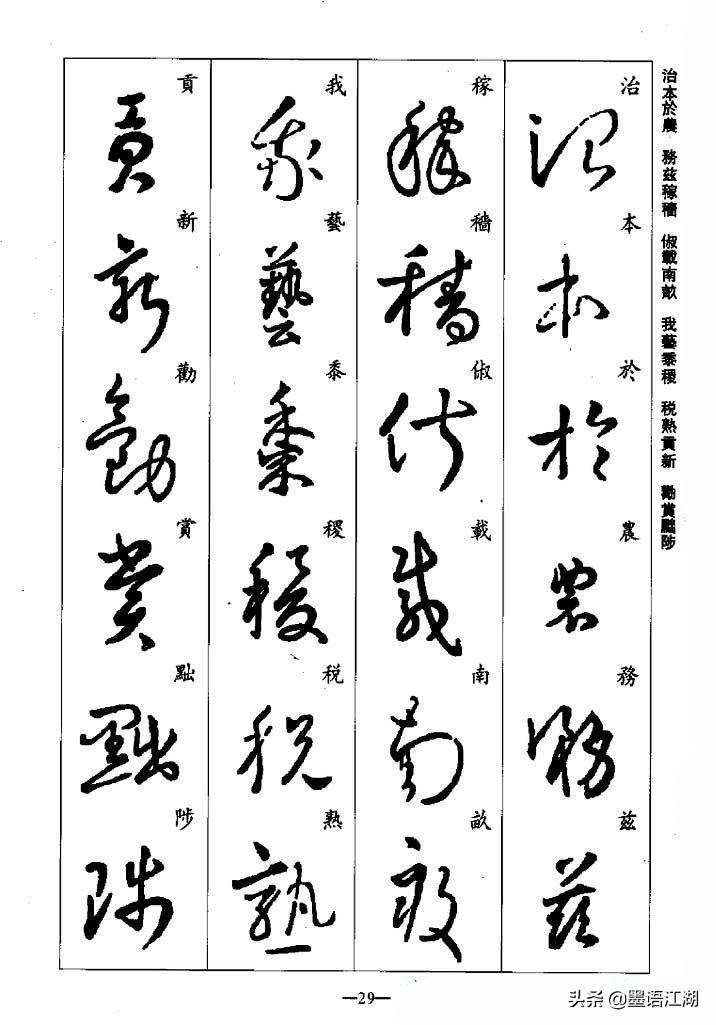 治本於農　務茲稼穡　俶載南畝　我藝黍稷　稅熟貢新　勸賞黜陟
治
本
於
農
務
茲
稼
穡
俶
載
南
畝
我
藝
黍
稷
稅
熟
貢
新
勸
賞
黜
陟
—29—
头条 @墨语江湖